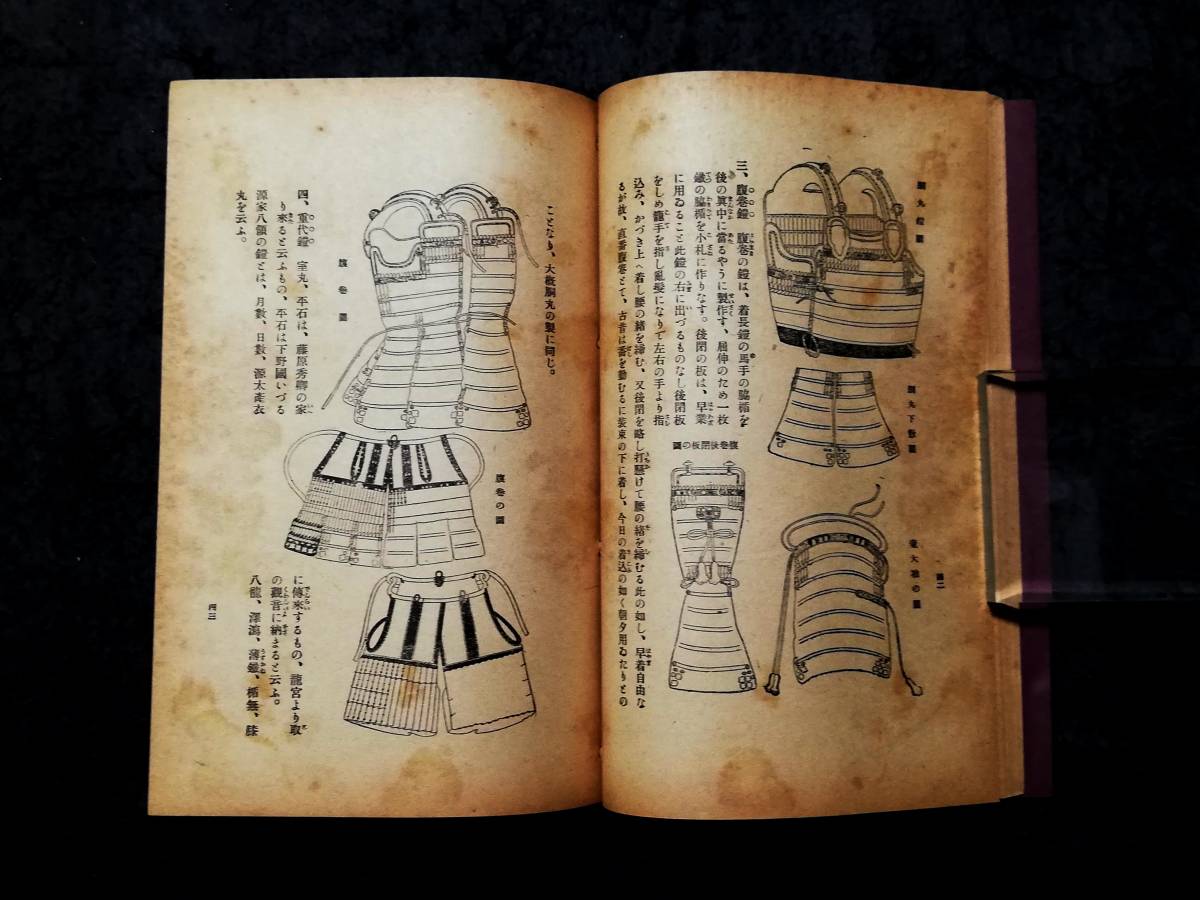 胴丸鎧圖
胴丸下散圖
童大袖の圖
四二
三、腹卷鎧　腹卷の鎧は、着長鎧の馬手の脇楯を
後の眞中に當るやうに製作す、屈伸のため一枚
鐵の脇楯を小札に作りなす。後閉の板は、早業
に用ゐること此鎧の右に出づるものなし後閉板
をしめ籠手を指し亂髮になりて左右の手より指
腹卷後閉板の圖
込み、かづき上へ着し腰の緒を締む、又後閉を略し打懸けて腰の緒を締むる此の如し、早着自由な
るが故、直番腹卷とて、古昔は番を勤むるに裝束の下に着し、今日の着込の如く朝夕用ゐたりとの
ことなり、大槪胴丸の製に同じ。
腹卷の圖
腹卷圖
四、重代鎧　室丸、平石は、藤原秀鄕の家
に傳來するもの、龍宮より取
り來ると云ふもの、平石は下野國いづる
の觀音に納まると云ふ。
源家八領の鎧とは、月數、日數、源太產衣
八龍、澤瀉、薄鐵、楯無、膝
丸を云ふ。
四三